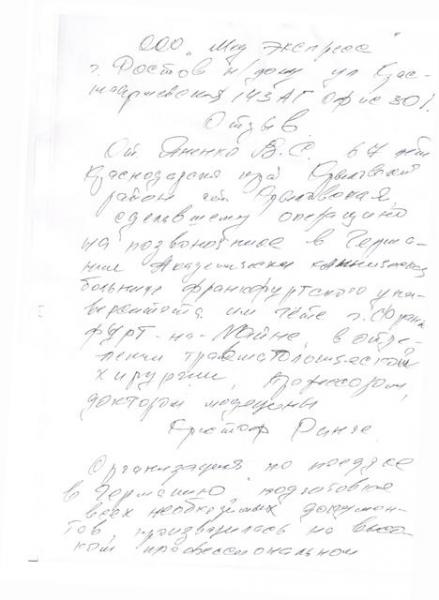 ООО "Мед Экспресс"
г. Ростов н/дону ул Крас-
ноармейская 143 АГ офис 301.
Отзыв
От Яненко В.С. 67 лет
Краснодарский край Крыловский
район ст. Крыловская,
сделавшему операцию
на позвоночнике в Герма-
нии Академическая клиническая
больница Франкфуртского уни-
верситета им Гёте г. Франк
фурт-на-Майне, в отде-
лении травматологической
хирургии, профессором,
доктором медицины
Кристоф
Организация по поездке
в Германию, подготовка
всех необходимых докумен-
тов, производилась на высо-
ком профессиональном